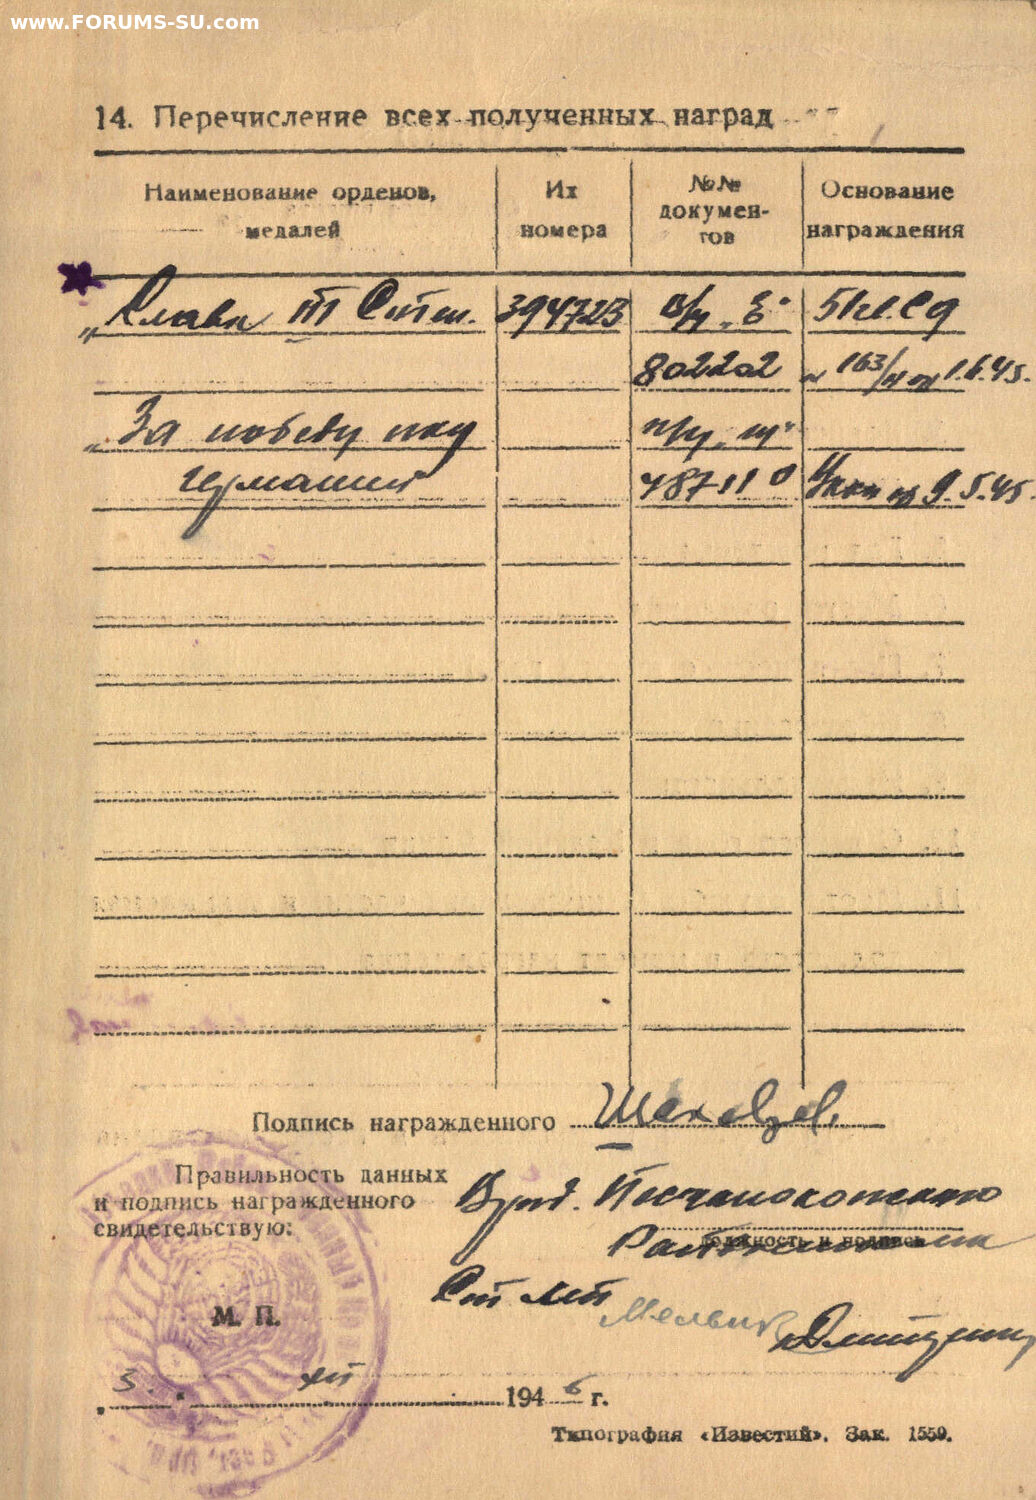 www.FORUMS-SU.com
14. Перечисление всех полученных наград
Наименование орденов, медалей
Их номера
№№ документов
Основание награждения
„Слава III Степ. 394723 в/у „Е" 51 кл. Сд
802202 № 163/н от 1.6.45.
„За победу над
германий 487110 Указ от 9.5.45.
Подпись награжденного Шеховцов
Правильность данных
и подпись награжденного
свидетельствую:
Врид. Песчанокопского
должность и подпись
Райвоенкома
Ст. л-т
М. П.
3. XII 1946 г.
Типография «Известий». Зак. 1559.